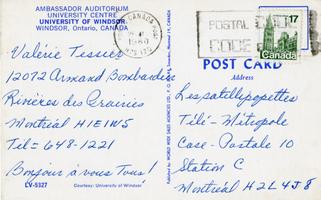 AMBASSADOR AUDITORIUM
UNIVERSITY CENTRE
UNIVERSITY OF WINDSOR
WINDSOR, Ontario, CANADA
Valérie Tessier
12072 Armand Bombardier
Rivières des Prairies
Montréal H1E1W5
Tel= 648-1221
Bonjour à vous Tous!
LV-5327
Courtesy: University of Windsor
CANADA
1980
POSTAL
CODE
17
Canada
POST CARD
Address
Les satellipopettes
Télé-Métropole
Case-Postale 10
Station C
Montréal H2L4J8